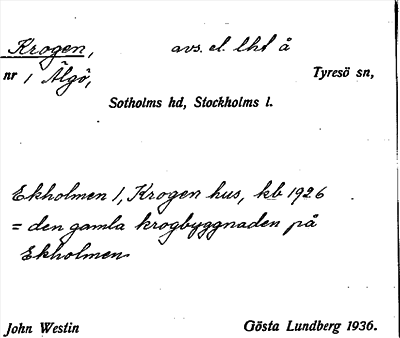 Krogen, avs. el. lht å
nr 1 Älgö, Tyresö sn,
Sotholms hd, Stockholms l.
Ekholmen 1, Krogen hus, kb 1926
= den gamla krogbyggnaden på
Ekholmen
John Westin Gösta Lundberg 1936.